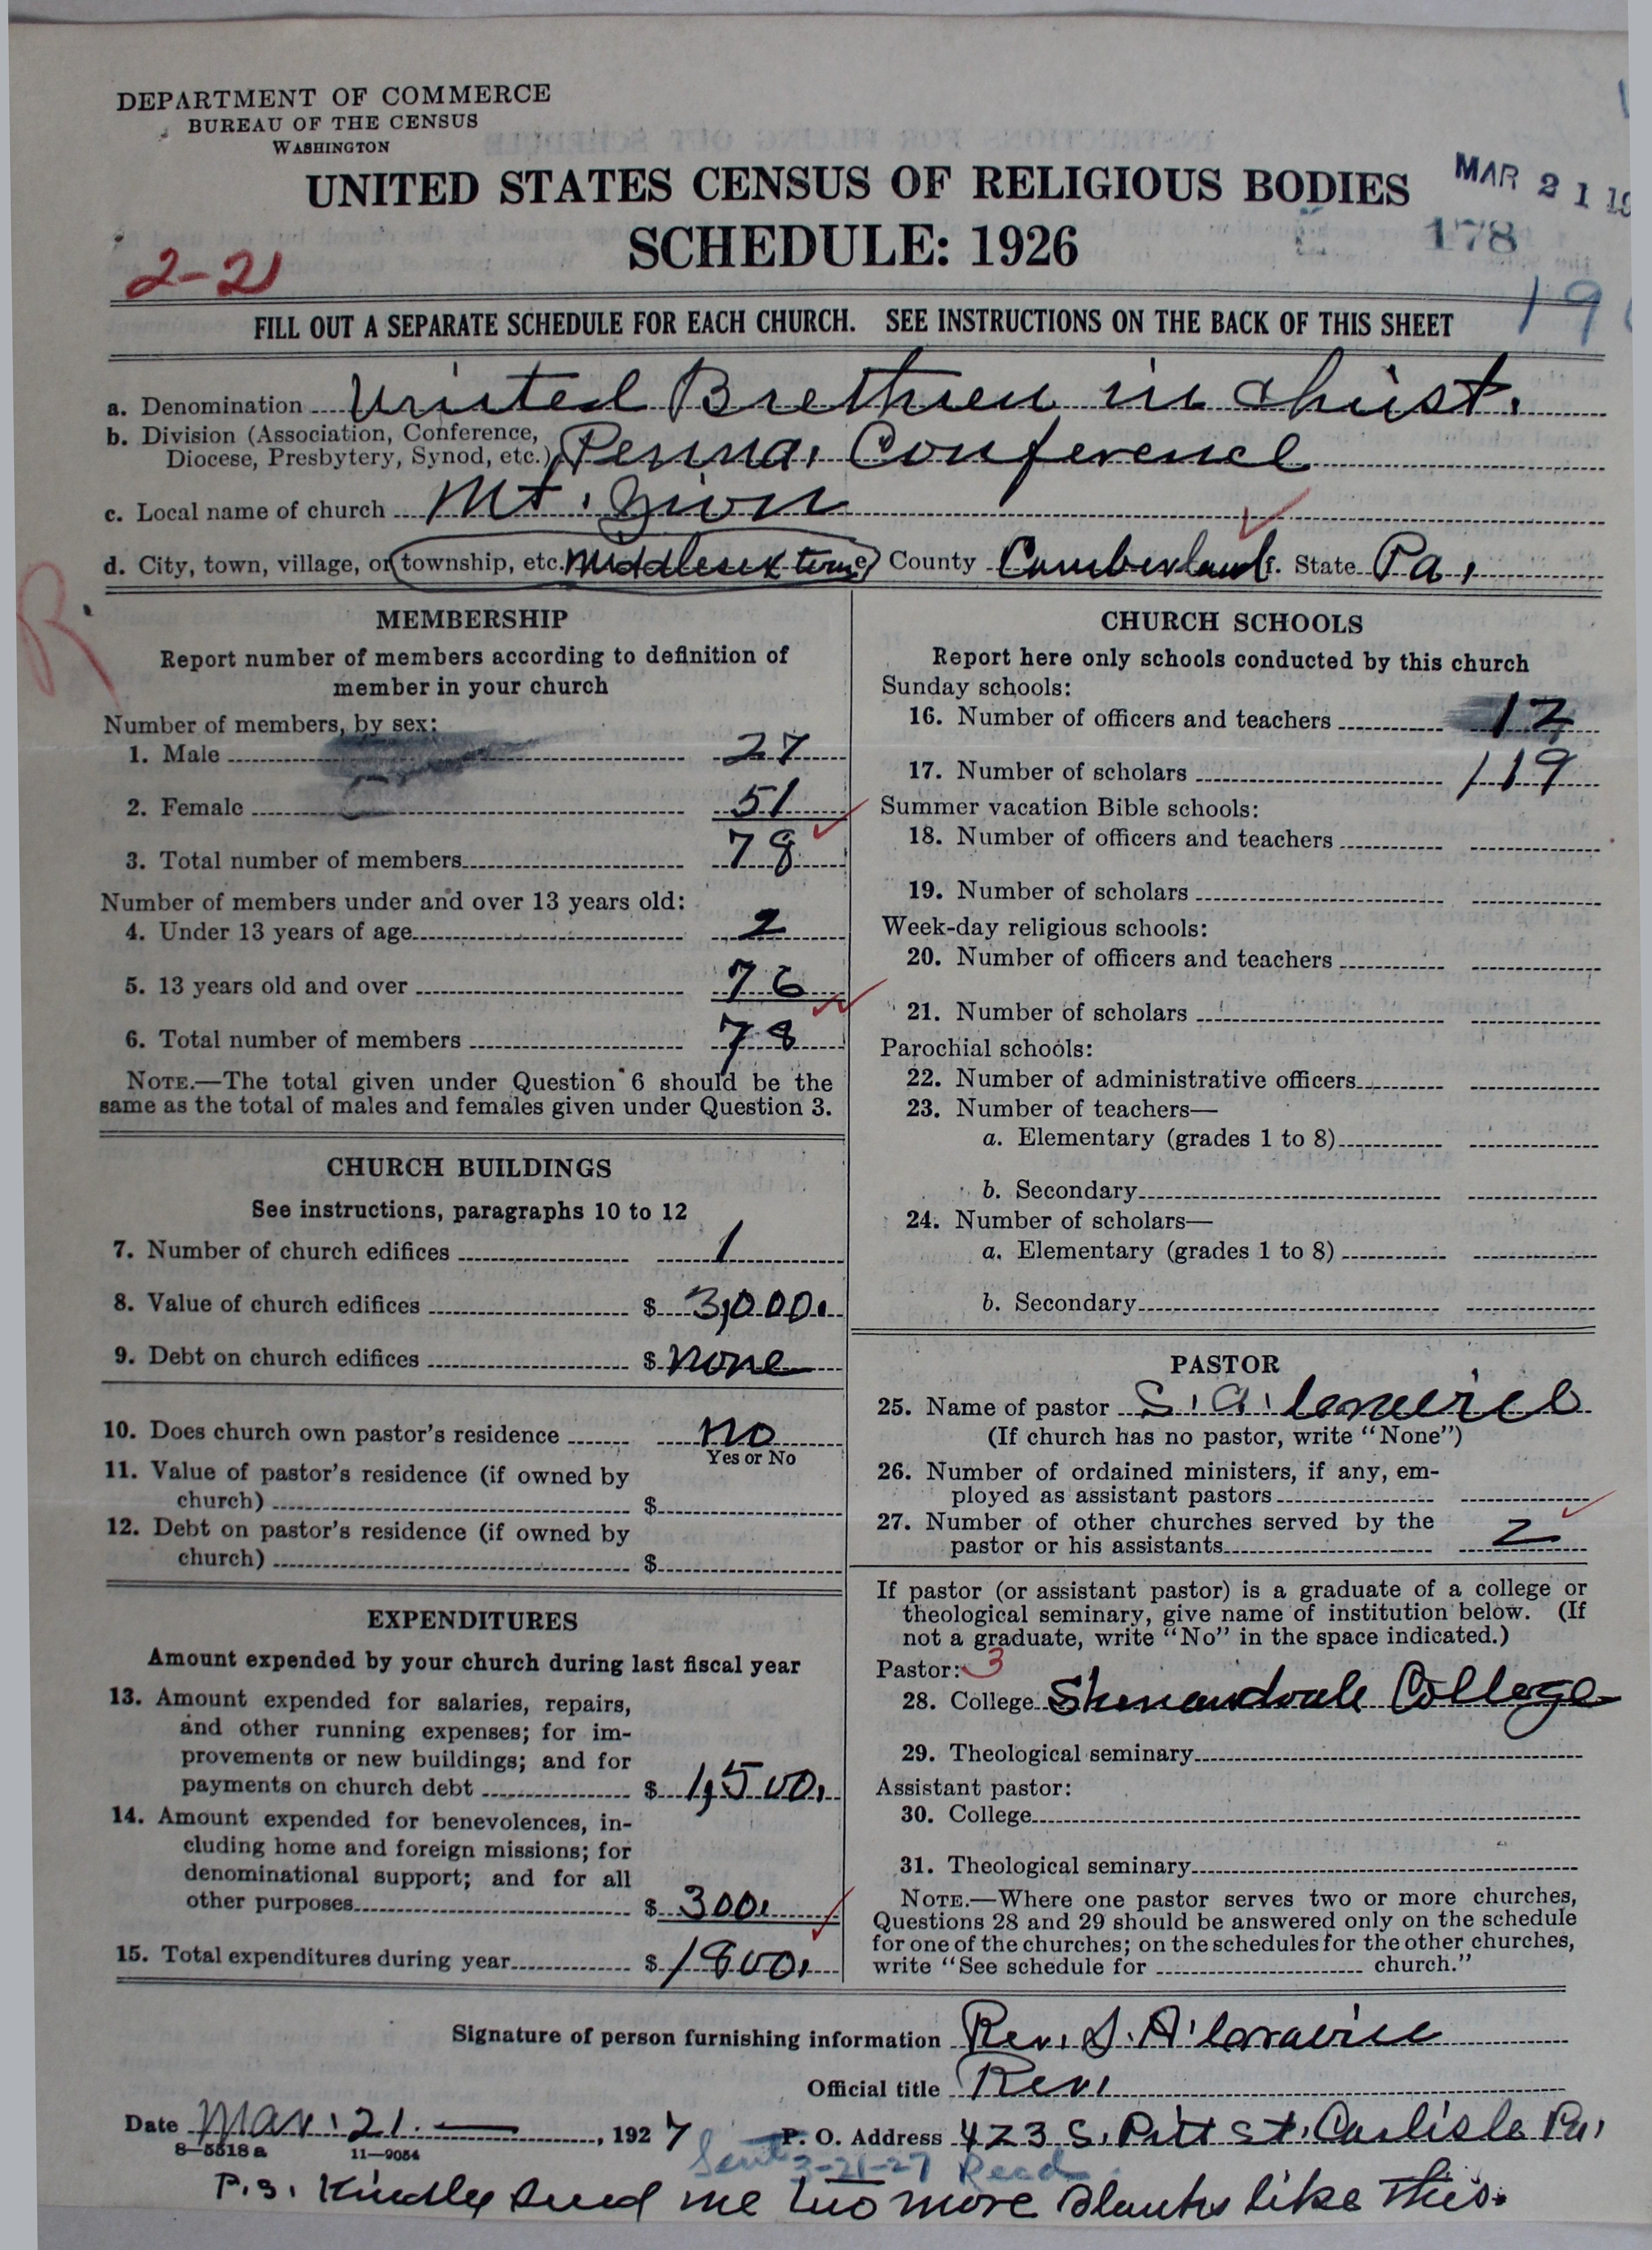 DEPARTMENT OF COMMERCE
BUREAU OF THE CENSUS
WASHINGTON
UNITED STATES CENSUS OF RELIGIOUS BODIES
SCHEDULE: 1926
MAR 21
178
2-21
FILL OUT A SEPARATE SCHEDULE FOR EACH CHURCH. SEE INSTRUCTIONS ON THE BACK OF THIS SHEET
a. Denomination United Brethren in Christ.
b. Division (Association, Conference, Diocese, Presbytery, Synod, etc.) Penna. Conference
c. Local name of church Mt. Zion
d. City, town, village, or township, etc. Middlesex County Cumberland State Pa.
R
MEMBERSHIP
Report number of members according to definition of
member in your church
Number of members, by sex:
1. Male 27
2. Female 51
3. Total number of members 78
Number of members under and over 13 years old:
4. Under 13 years of age 2
5. 13 years old and over 76
6. Total number of members 78
NOTE.—The total given under Question 6 should be the
same as the total of males and females given under Question 3.
CHURCH BUILDINGS
See instructions, paragraphs 10 to 12
7. Number of church edifices 1
8. Value of church edifices $ 3,000.
9. Debt on church edifices $ none
10. Does church own pastor's residence no
Yes or No
11. Value of pastor's residence (if owned by
church) $
12. Debt on pastor's residence (if owned by
church) $
EXPENDITURES
Amount expended by your church during last fiscal year
13. Amount expended for salaries, repairs,
and other running expenses; for im-
provements or new buildings; and for
payments on church debt $ 1,500.
14. Amount expended for benevolences, in-
cluding home and foreign missions; for
denominational support; and for all
other purposes $ 300.
15. Total expenditures during year $ 1800.
CHURCH SCHOOLS
Report here only schools conducted by this church
Sunday schools:
16. Number of officers and teachers 12
17. Number of scholars 119
Summer vacation Bible schools:
18. Number of officers and teachers
19. Number of scholars
Week-day religious schools:
20. Number of officers and teachers
21. Number of scholars
Parochial schools:
22. Number of administrative officers
23. Number of teachers—
a. Elementary (grades 1 to 8)
b. Secondary
24. Number of scholars—
a. Elementary (grades 1 to 8)
b. Secondary
PASTOR
25. Name of pastor S. A.
(If church has no pastor, write "None")
26. Number of ordained ministers, if any, em-
ployed as assistant pastors
27. Number of other churches served by the
pastor or his assistants 2
If pastor (or assistant pastor) is a graduate of a college or
theological seminary, give name of institution below. (If
not a graduate, write "No" in the space indicated.)
Pastor: 3
28. College Shenandoah College
29. Theological seminary
Assistant pastor:
30. College
31. Theological seminary
NOTE.—Where one pastor serves two or more churches,
Questions 28 and 29 should be answered only on the schedule
for one of the churches; on the schedules for the other churches,
write "See schedule for church."
Signature of person furnishing information Rev. S. A.
Official title Rev.
Date Mar. 21. —, 1927 P. O. Address 423 S. Pitt St. Carlisle Pa.
8—5518 a 11—9054
Sent 3-21-27 Read
P.S. Kindly send me two more blanks like this.